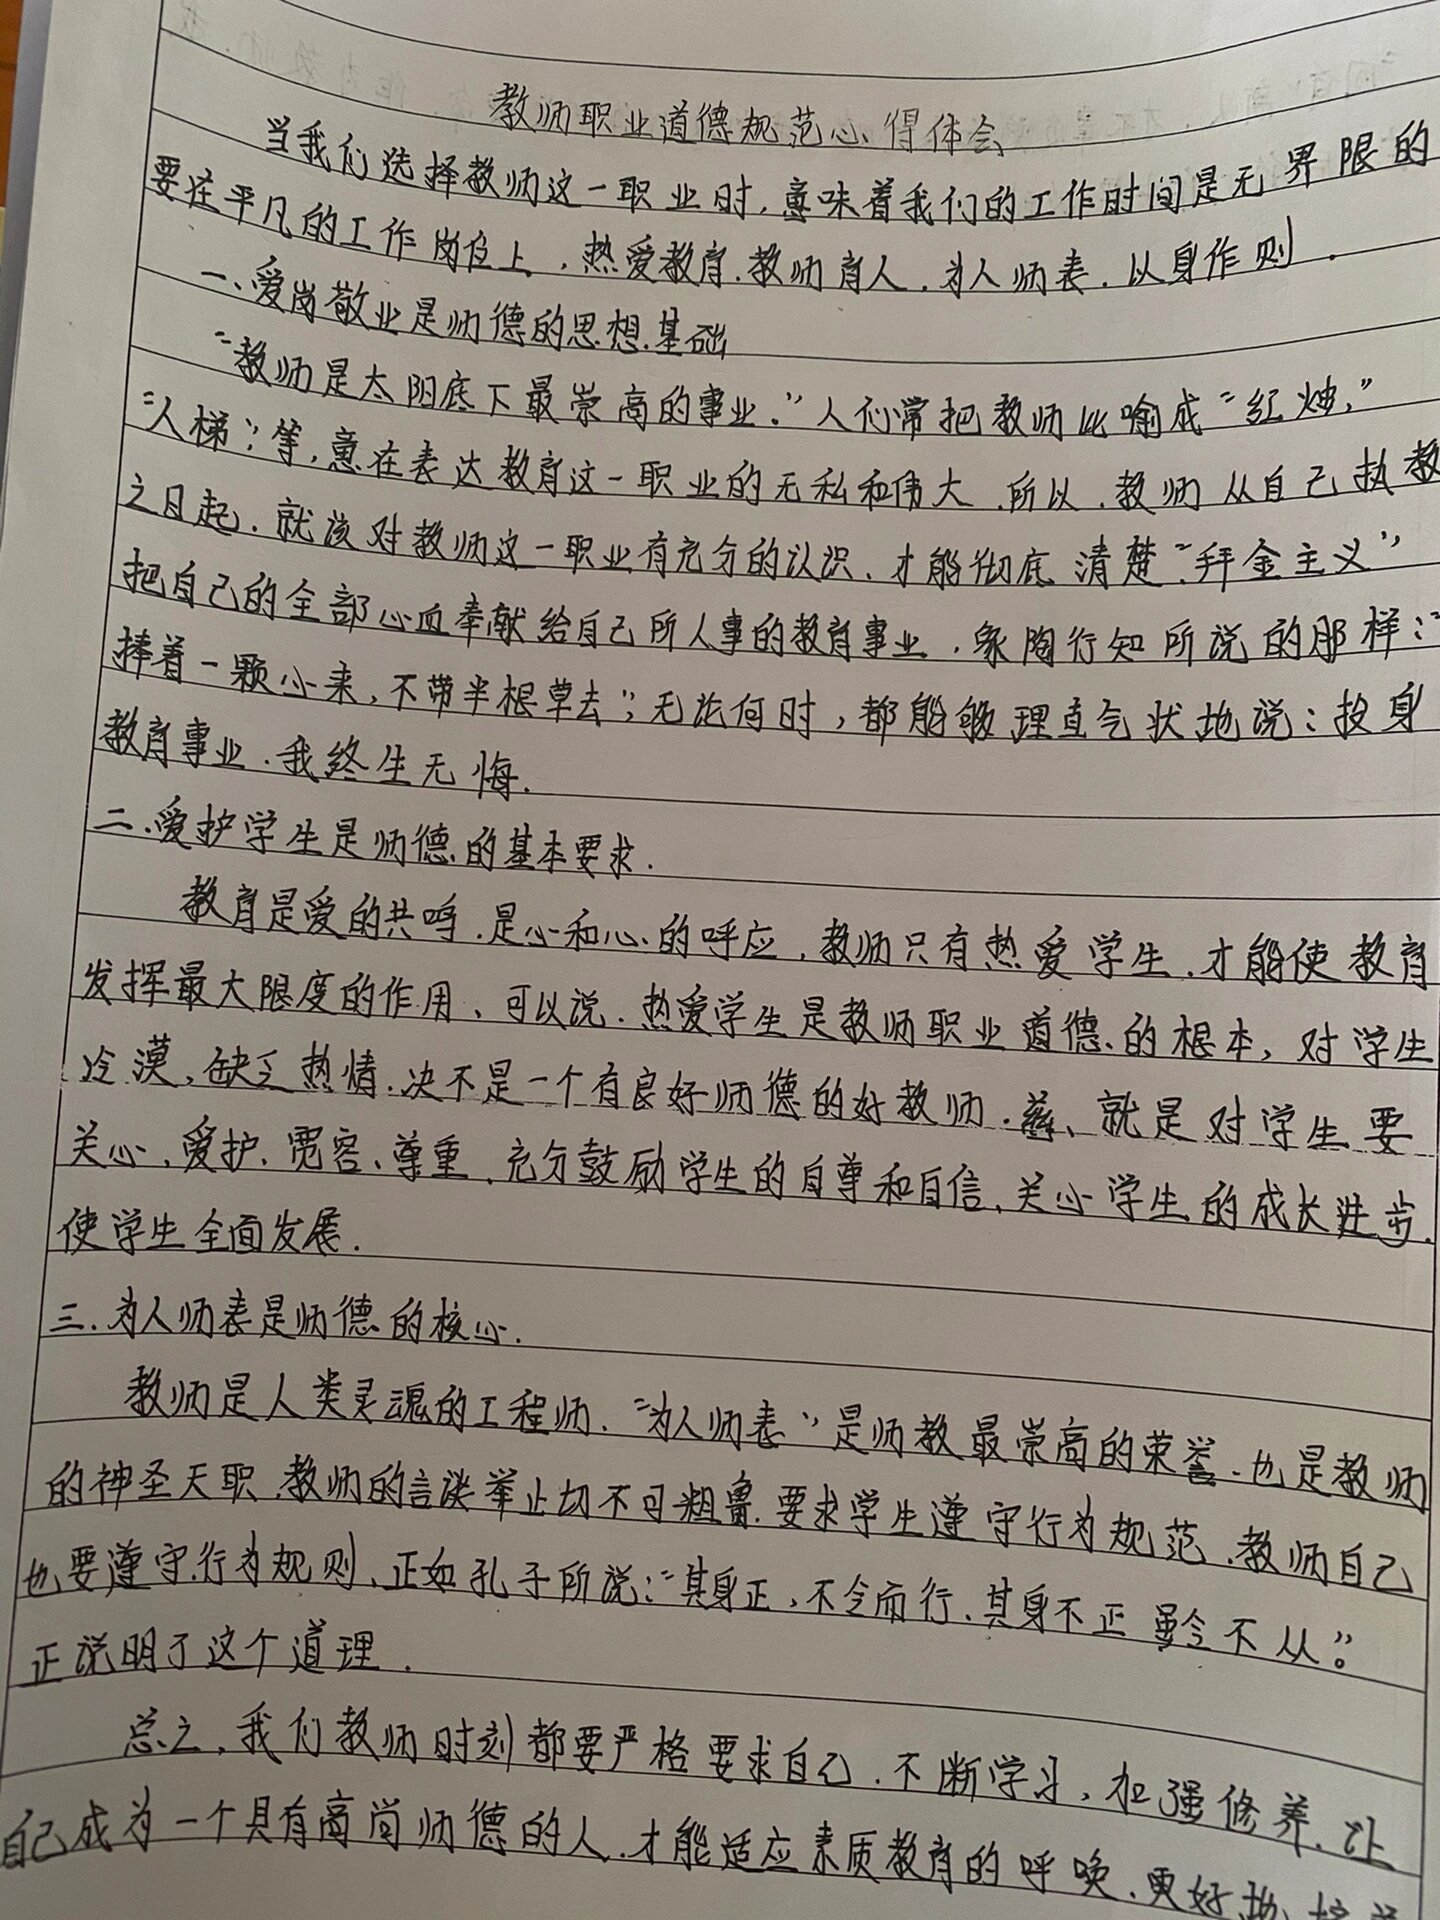 教师职业道德规范心得体会
当我们选择教师这一职业时,意味着我们的工作时间是无界限的
要在平凡的工作岗位上,热爱教育.教师育人.为人师表.以身作则.
一.爱岗敬业是师德的思想基础
“教师是太阳底下最崇高的事业.”人们常把教师比喻成“红烛,”
“人梯”等,意在表达教育这一职业的无私和伟大.所以.教师从自己执教
之日起.就该对教师这一职业有充分的认识.才能彻底清楚“拜金主义”
把自己的全部心血奉献给自己所人事的教育事业.象陶行知所说的那样:“
捧着一颗心来,不带半根草去”;无论何时,都能够理直气状地说:投身
教育事业.我终生无悔.
二.爱护学生是师德的基本要求.
教育是爱的共鸣.是心和心的呼应,教师只有热爱学生.才能使教育
发挥最大限度的作用、可以说.热爱学生是教师职业道德的根本,对学生
冷漠,缺乏热情.决不是一个有良好师德的好教师.就是对学生要
关心.爱护.宽容、尊重.充分鼓励学生的自尊和自信、关心学生的成长进步.
使学生全面发展.
三.为人师表是师德的核心.
教师是人类灵魂的工程师.“为人师表”是师教最崇高的荣誉.也是教师
的神圣天职.教师的言谈举止切不可粗鲁.要求学生遵守行为规范.教师自己
也要遵守行为规则、正如孔子所说:“其身正,不令而行.其身不正虽令不从”。
正说明了这个道理.
总之,我们教师时刻都要严格要求自己.不断学习,加强修养.让
自己成为一个具有高尚师德的人.才能适应素质教育的呼唤.更好地